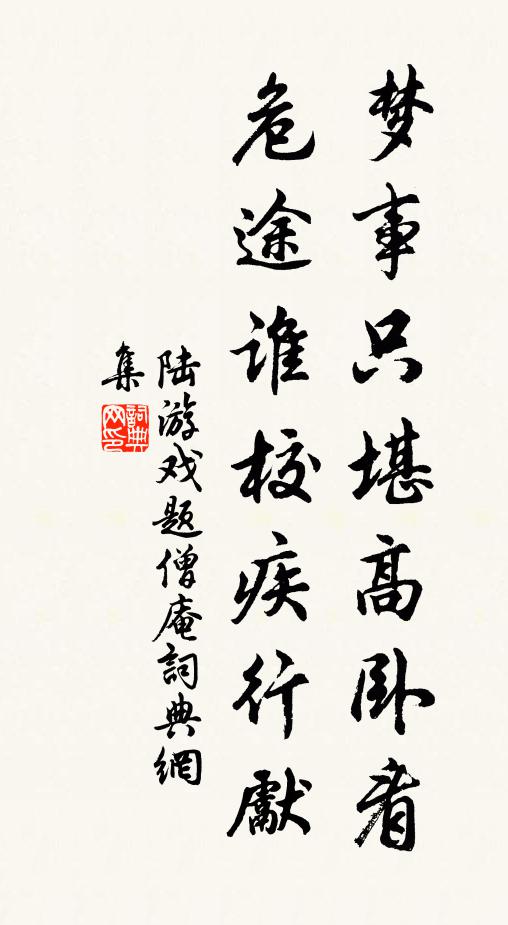 梦事只堪高卧看
危途谁校疾行獻
陆游戏题僧庵詞典網
集
詞典
网印